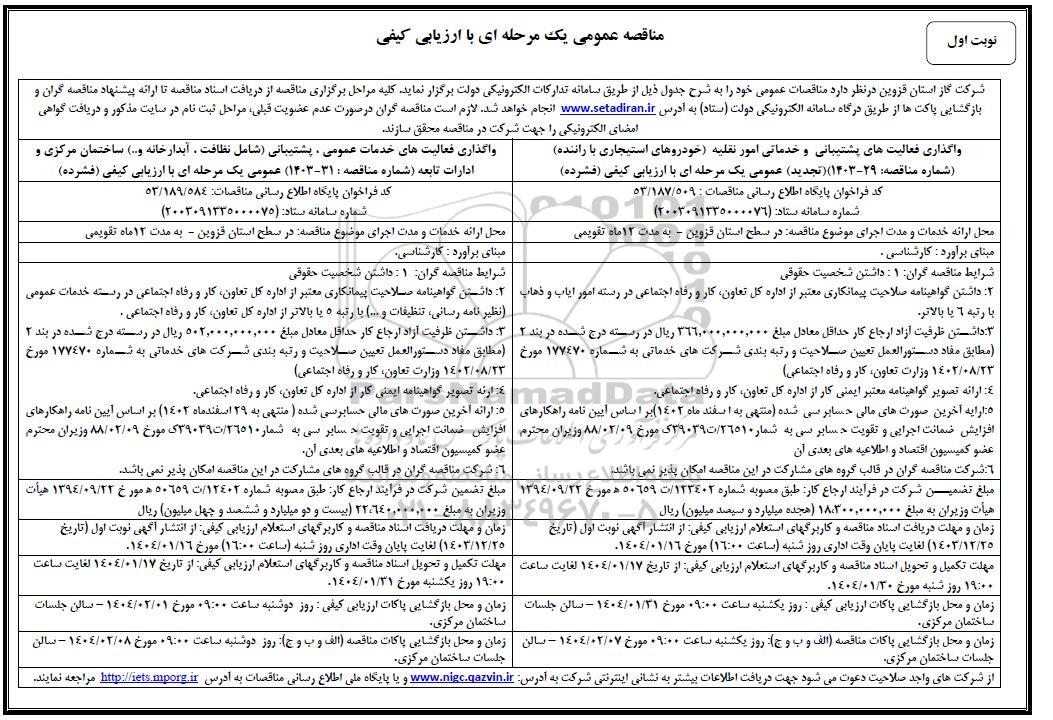 نوبت اول
مناقصه عمومی یک مرحله ای با ارزیابی کیفی
شرکت گاز استان قزوین درنظر دارد مناقصات عمومی خود را به شرح جدول ذیل از طریق سامانه تدارکات الکترونیکی دولت برگزار نماید. کلیه مراحل برگزاری مناقصه از دریافت اسناد مناقصه تا ارائه پیشنهاد مناقصه گران و
بازگشایی پاکت ها از طریق درگاه سامانه الکترونیکی دولت (ستاد) به آدرس www.setadiran.ir انجام خواهد شد. لازم است مناقصه گران درصورت عدم عضویت قبلی، مراحل ثبت نام در سایت مذکور و دریافت گواهی
امضای الکترونیکی را جهت شرکت در مناقصه محقق سازند.
واگذاری فعالیت های پشتیبانی و خدماتی امور نقلیه (خودروهای استیجاری با راننده)
(شماره مناقصه: ۲۹-۱۴۰۳)(تجدید) عمومی یک مرحله ای با ارزیابی کیفی (فشرده)
کد فراخوان پایگاه اطلاع رسانی مناقصات : ۵۳/۱۸۷/۵۰۹
شماره سامانه ستاد: (۲۰۰۳۰۹۱۳۳۵۰۰۰۰۷۶)
محل ارائه خدمات و مدت اجرای موضوع مناقصه: در سطح استان قزوین - به مدت ۱۲ماه تقویمی
مبنای برآورد : کارشناسی .
شرایط مناقصه گران: ۱ : داشتن شخصیت حقوقی
۲: داشتن گواهینامه صلاحیت پیمانکاری معتبر از اداره کل تعاون، کار و رفاه اجتماعی در رسته امور ایاب و ذهاب
با رتبه ۶ یا بالاتر.
۳:داشتن ظرفیت آزاد ارجاع کار حداقل معادل مبلغ ۳۶۶,۰۰۰,۰۰۰,۰۰۰ ریال در رسته درج شده در بند ۲
(مطابق مفاد دستورالعمل تعیین صلاحیت و رتبه بندی شرکت های خدماتی به شماره ۱۷۷۴۷۰ مورخ
۱۴۰۲/۰۸/۲۳ وزارت تعاون، کار و رفاه اجتماعی)
۴: ارائه تصویر گواهینامه معتبر ایمنی کار از اداره کل تعاون، کار و رفاه اجتماعی.
۵:ارایه آخرین صورت های مالی حسابرسی شده (منتهی به اسفند ماه ۱۴۰۲)بر اساس آیین نامه راهکارهای
افزایش ضمانت اجرایی و تقویت حسابرسی به شمار۲۶۵۱۰/ت۳۹۰۳۹ک مورخ ۸۸/۰۲/۰۹ وزیران محترم
عضو کمیسیون اقتصاد و اطلاعیه های بعدی آن.
۶:شرکت مناقصه گران در قالب گروه های مشارکت در این مناقصه امکان پذیر نمی باشد.
مبلغ تضمین شرکت در فرآیند ارجاع کار: طبق مصوبه شماره ۱۲۳۴۰۲/ت ۵۰۶۵۹ ه مورخ ۱۳۹۴/۰۹/۲۲
هیأت وزیران به مبلغ ۱۸.۳۰۰,۰۰۰,۰۰۰ (هجده میلیارد و سیصد میلیون) ریال
زمان و مهلت دریافت اسناد مناقصه و کاربرگهای استعلام ارزیابی کیفی: از انتشار آگهی نوبت اول (تاریخ
۱۴۰۳/۱۲/۲۵) لغایت پایان وقت اداری روز شنبه (ساعت ۱۶:۰۰) مورخ ۱۴۰۴/۰۱/۱۶.
مهلت تکمیل و تحویل اسناد مناقصه و کاربرگهای استعلام ارزیابی کیفی: از تاریخ ۱۴۰۴/۰۱/۱۷ لغایت ساعت
۱۹:۰۰ روز شنبه مورخ ۱۴۰۴/۰۱/۳۰.
زمان و محل بازگشایی پاکات ارزیابی کیفی : روز یکشنبه ساعت ۰۹:۰۰ مورخ ۱۴۰۴/۰۱/۳۱ – سالن جلسات
ساختمان مرکزی.
زمان و محل بازگشایی پاکات مناقصه (الف و ب و ج): روز یکشنبه ساعت ۰۹:۰۰ مورخ ۱۴۰۴/۰۲/۰۷ – سالن
جلسات ساختمان مرکزی.
واگذاری فعالیت های خدمات عمومی ، پشتیبانی (شامل نظافت ، آبدارخانه و..) ساختمان مرکزی و
ادارات تابعه (شماره مناقصه : ۳۱-۱۴۰۳) عمومی یک مرحله ای با ارزیابی کیفی (فشرده)
کد فراخوان پایگاه اطلاع رسانی مناقصات: ۵۳/۱۸۹/۵۸۴
شماره سامانه ستاد: (۲۰۰۳۰۹۱۳۳۵۰۰۰۰۷۵)
محل ارائه خدمات و مدت اجرای موضوع مناقصه: در سطح استان قزوین - به مدت ۱۲ماه تقویمی
مبنای برآورد : کارشناسی.
شرایط مناقصه گران: ۱ : داشتن شخصیت حقوقی
۲: داشتن گواهینامه صلاحیت پیمانکاری معتبر از اداره کل تعاون، کار و رفاه اجتماعی در رسته خدمات عمومی
(نظیر نامه رسانی، تنظیفات و ...) با رتبه ۵ یا بالاتر از اداره کل تعاون، کار و رفاه اجتماعی .
۳: داشتن ظرفیت آزاد ارجاع کار حداقل معادل مبلغ ۵۰۲,۰۰۰,۰۰۰,۰۰۰ ریال در رسته درج شده در بند ۲
(مطابق مفاد دستورالعمل تعیین صلاحیت و رتبه بندی شرکت های خدماتی به شماره ۱۷۷۴۷۰ مورخ
۱۴۰۲/۰۸/۲۳ وزارت تعاون، کار و رفاه اجتماعی)
۴: ارئه تصویر گواهینامه ایمنی کار از اداره کل تعاون، کار و رفاه اجتماعی.
۵: ارائه آخرین صورت های مالی حسابرسی شده ( منتهی به ۲۹ اسفندماه ۱۴۰۲) بر اساس آیین نامه راهکارهای
افزایش ضمانت اجرایی و تقویت حسابرسی به شماره۲۶۵۱۰/ت۳۹۰۳۹ک مورخ ۸۸/۰۲/۰۹ وزیران محترم
عضو کمیسیون اقتصاد و اطلاعیه های بعدی آن.
۶: شرکت مناقصه گران در قالب گروه های مشارکت در این مناقصه امکان پذیر نمی باشد.
مبلغ تضمین شرکت در فرآیند ارجاع کار: طبق مصوبه شماره ۱۲۳۴۰۲/ت ۵۰۶۵۹ ه مورخ ۱۳۹۴/۰۹/۲۲ هیأت
وزیران به مبلغ ۲۲.۶۴۰,۰۰۰,۰۰۰ (بیست و دو میلیارد و ششصد و چهل میلیون) ریال
زمان و مهلت دریافت اسناد مناقصه و کاربرگهای استعلام ارزیابی کیفی: از انتشار آگهی نوبت اول (تاریخ
۱۴۰۳/۱۲/۲۵) لغایت پایان وقت اداری روز شنبه (ساعت ۱۶:۰۰) مورخ ۱۴۰۴/۰۱/۱۶.
مهلت تکمیل و تحویل اسناد مناقصه و کاربرگهای استعلام ارزیابی کیفی: از تاریخ ۱۴۰۴/۰۱/۱۷ لغایت ساعت
۱۹:۰۰ روز یکشنبه مورخ ۱۴۰۴/۰۱/۳۱.
زمان و محل بازگشایی پاکات ارزیابی کیفی : روز دوشنبه ساعت ۰۹:۰۰ مورخ ۱۴۰۴/۰۲/۰۱ – سالن جلسات
ساختمان مرکزی.
زمان و محل بازگشایی پاکات مناقصه (الف و ب و ج): روز دوشنبه ساعت ۰۹:۰۰ مورخ ۱۴۰۴/۰۲/۰۸ – سالن
جلسات ساختمان مرکزی.
از شرکت های واجد صلاحیت دعوت می شود جهت دریافت اطلاعات بیشتر به نشانی اینترنتی شرکت به آدرس: www.nigc.qazvin.ir و یا پایگاه ملی اطلاع رسانی مناقصات به آدرس http://iets.mporg.ir مراجعه نمایند.
ParsNamadData